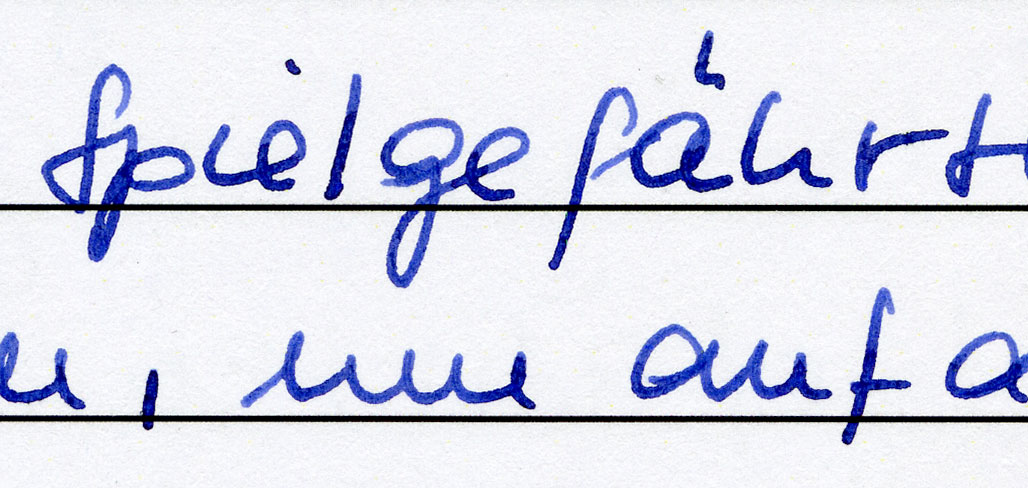 Spielgefährt
, um auf a